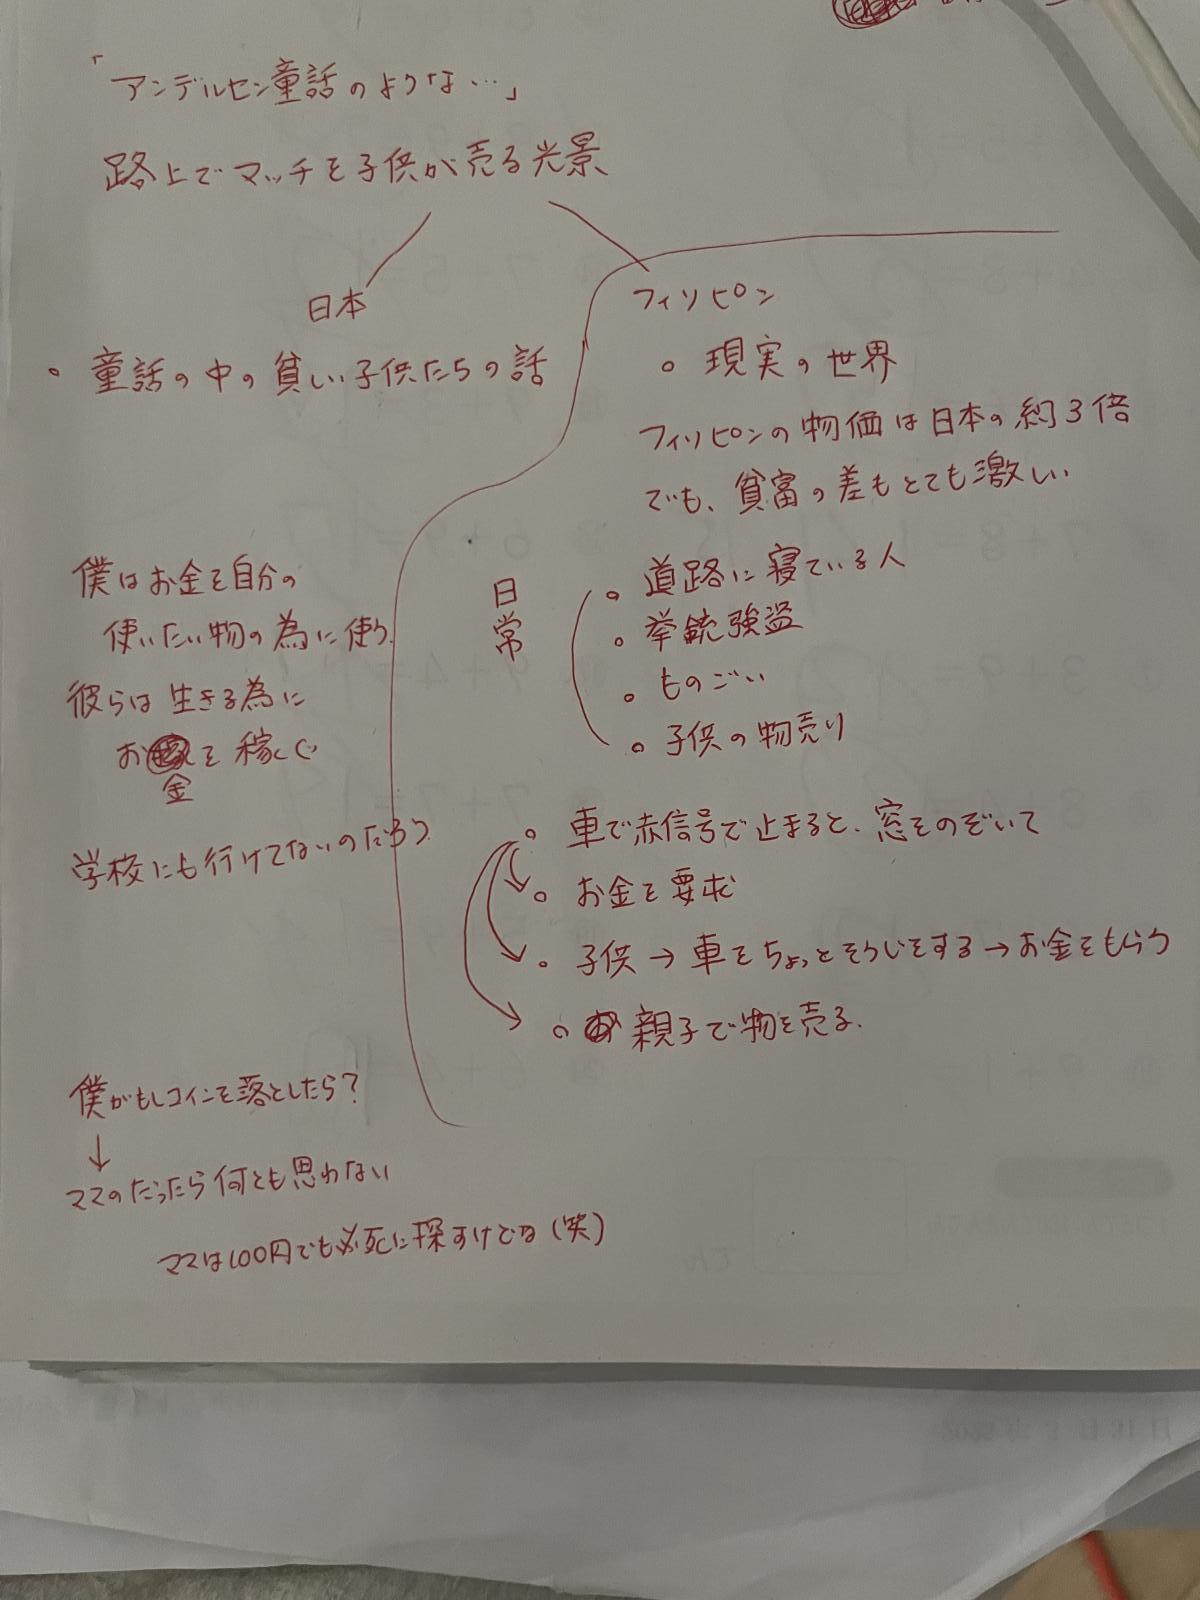 「アンデルセン童話のような…」
路上でマッチを子供が売る光景
日本
。童話の中の貧しい子供たちの話
僕はお金を自分の
使いたい物の為に使う。
彼らは生きる為に
お金を稼ぐ
学校にも行けてないのだろう。
僕がもしコインを落としたら?
↓
ママのだったら何とも思わない
ママは100円でも必死に探すけどね(笑)
フィリピン
。現実の世界
フィリピンの物価は日本の約3倍
でも、貧富の差もとても激しい
日常
。道路に寝ている人
。拳銃強盗
。ものごい
。子供の物売り
。車で赤信号で止まると、窓をのぞいて
。お金を要求
。子供→車をちょっとそうじをする→お金をもらう
。親子で物を売る.